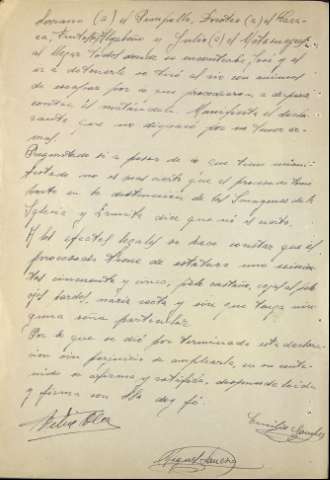 Lorenzo (a) el Punpollo, Doroteo (a) el
Eustasio Hombre y Julio (a) el Matamoros
al llegar todos donde se encontraba José y el
ir a detenerle se tiró al río con ánimo
de escapar por lo que procedieron a disparar
contra él matándole. Manifiesta el decla
rante que no disparó por no tener ar
ma.
Preguntado si a pesar de lo que tiene mani
festado no es mas cierto que el procesado tomó
parte en la destrucción de las Imagenes de la
Iglesia y Ermita dice que no es cierto.
A los efectos legales se hace constar que el
procesado tiene de estatura uno sesen
ta cincuenta y cinco, pelo castaño, cejas al pelo
ojos pardos, nariz recta y sin que tenga nin
guna seña particular
Por lo que se dió por terminada esta declara
cion sin perjuicio de ampliarla, en su conte
nido se afirma y ratifica, despues de leida
y firma con Sª doy fé.
Felix
Emilio Sanchez
Miguel Sanchez